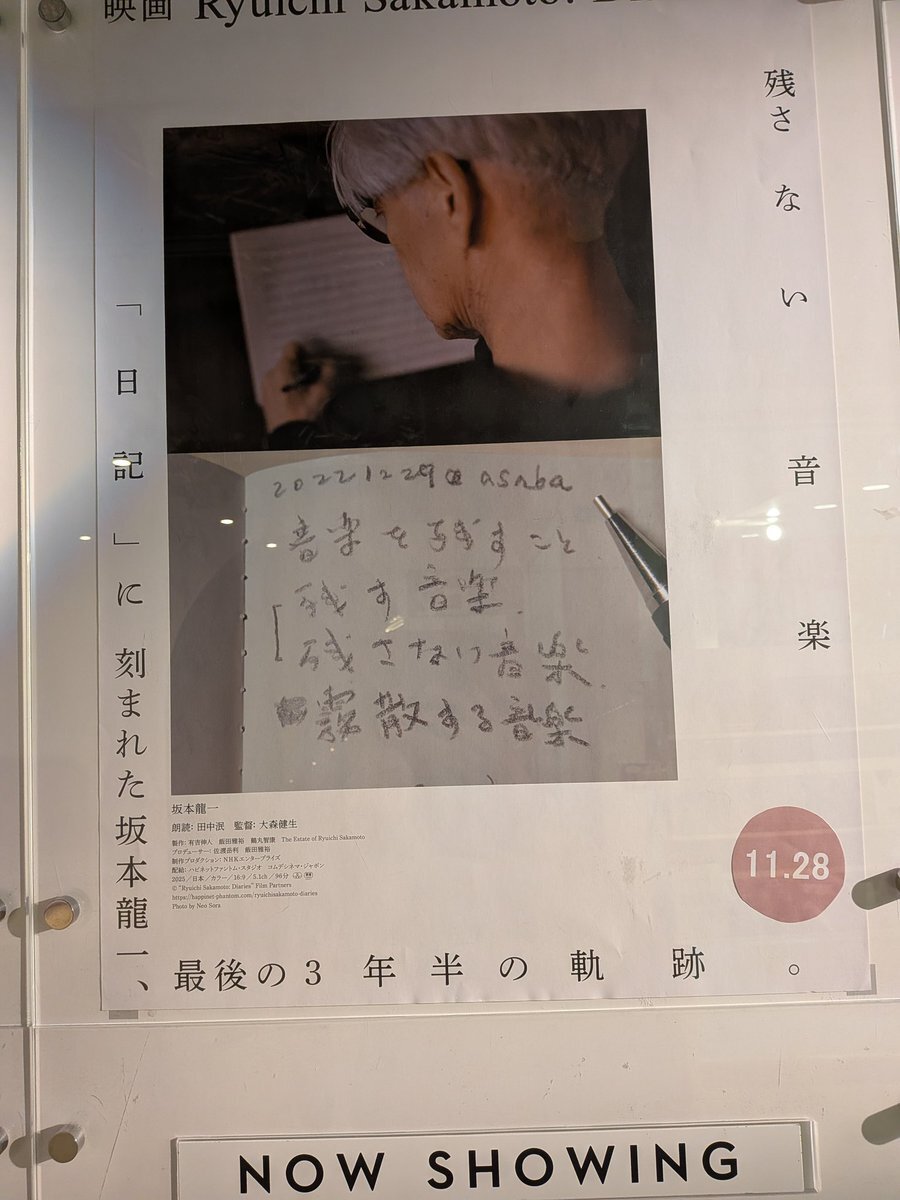 映画 Ryuichi Sakamoto:
残さない音楽
「日記」に刻まれた坂本龍一、
最後の3年半の軌跡。
20221229 @ asaba
音楽を残すこと
残す音楽.
残さない音楽.
霧散する音楽
坂本龍一
朗読: 田中泯 監督: 大森健生
製作: 有吉伸人 飯田雅裕 鶴丸智康 The Estate of Ryuichi Sakamoto
プロデューサー: 佐渡岳利 飯田雅裕
制作プロダクション: NHKエンタープライズ
配給: ハピネットファントム・スタジオ コムデシネマ・ジャポン
2025/日本/カラー/16:9/5.1ch/96分
© "Ryuichi Sakamoto: Diaries" Film Partners
https://happinet-phantom.com/ryuichisakamoto-diaries
Photo by Neo Sora
11.28
NOW SHOWING